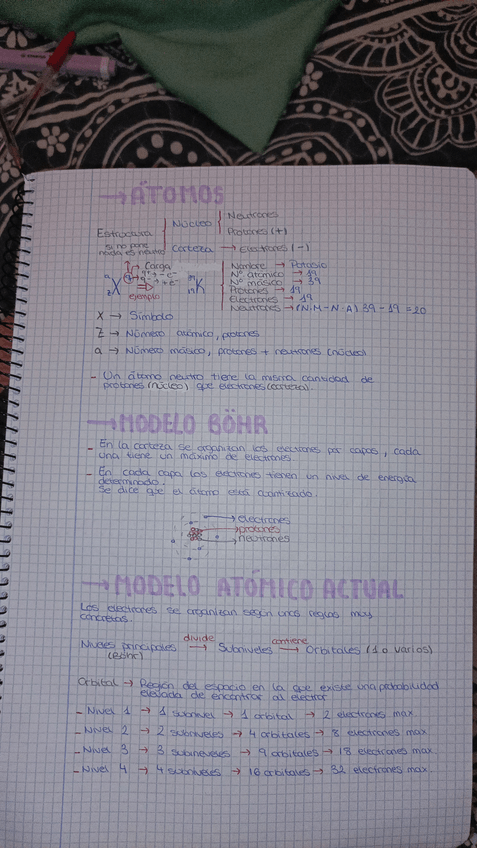 → ÁTOMOS
Estructura { Núcleo { Neutrones
Protones (+)
Corteza → Electrones (-)
si no pone nada es neutro
Carga
a
z X
ejemplo
39
19 K
Nombre → Potasio
Nº atómico → 19
Nº másico → 39
Protones → 19
Electrones → 19
Neutrones → (N.M - N.A) 39 - 19 = 20
X → Símbolo
Z → Número atómico, protones
a → Número másico, protones + neutrones (núcleo)
- Un átomo neutro tiene la misma cantidad de
protones (núcleo) que electrones (corteza).
→ MODELO BÖHR
- En la corteza se organizan los electrones por capas, cada
una tiene un máximo de electrones.
- En cada capa los electrones tienen un nivel de energía
determinado.
Se dice que el átomo está cuantizado.
→ electrones
→ protones
→ neutrones
→ MODELO ATÓMICO ACTUAL
Los electrones se organizan según unas reglas muy
concretas.
Niveles principales divide → Subniveles contiene → Orbitales (1 o varios)
(Bohr)
Orbital → Región del espacio en la que existe una probabilidad
elevada de encontrar al electrón
- Nivel 1 → 1 subnivel → 1 orbital → 2 electrones max
- Nivel 2 → 2 subniveles → 4 orbitales → 8 electrones max
- Nivel 3 → 3 subniveles → 9 orbitales → 18 electrones max
- Nivel 4 → 4 subniveles → 16 orbitales → 32 electrones max.